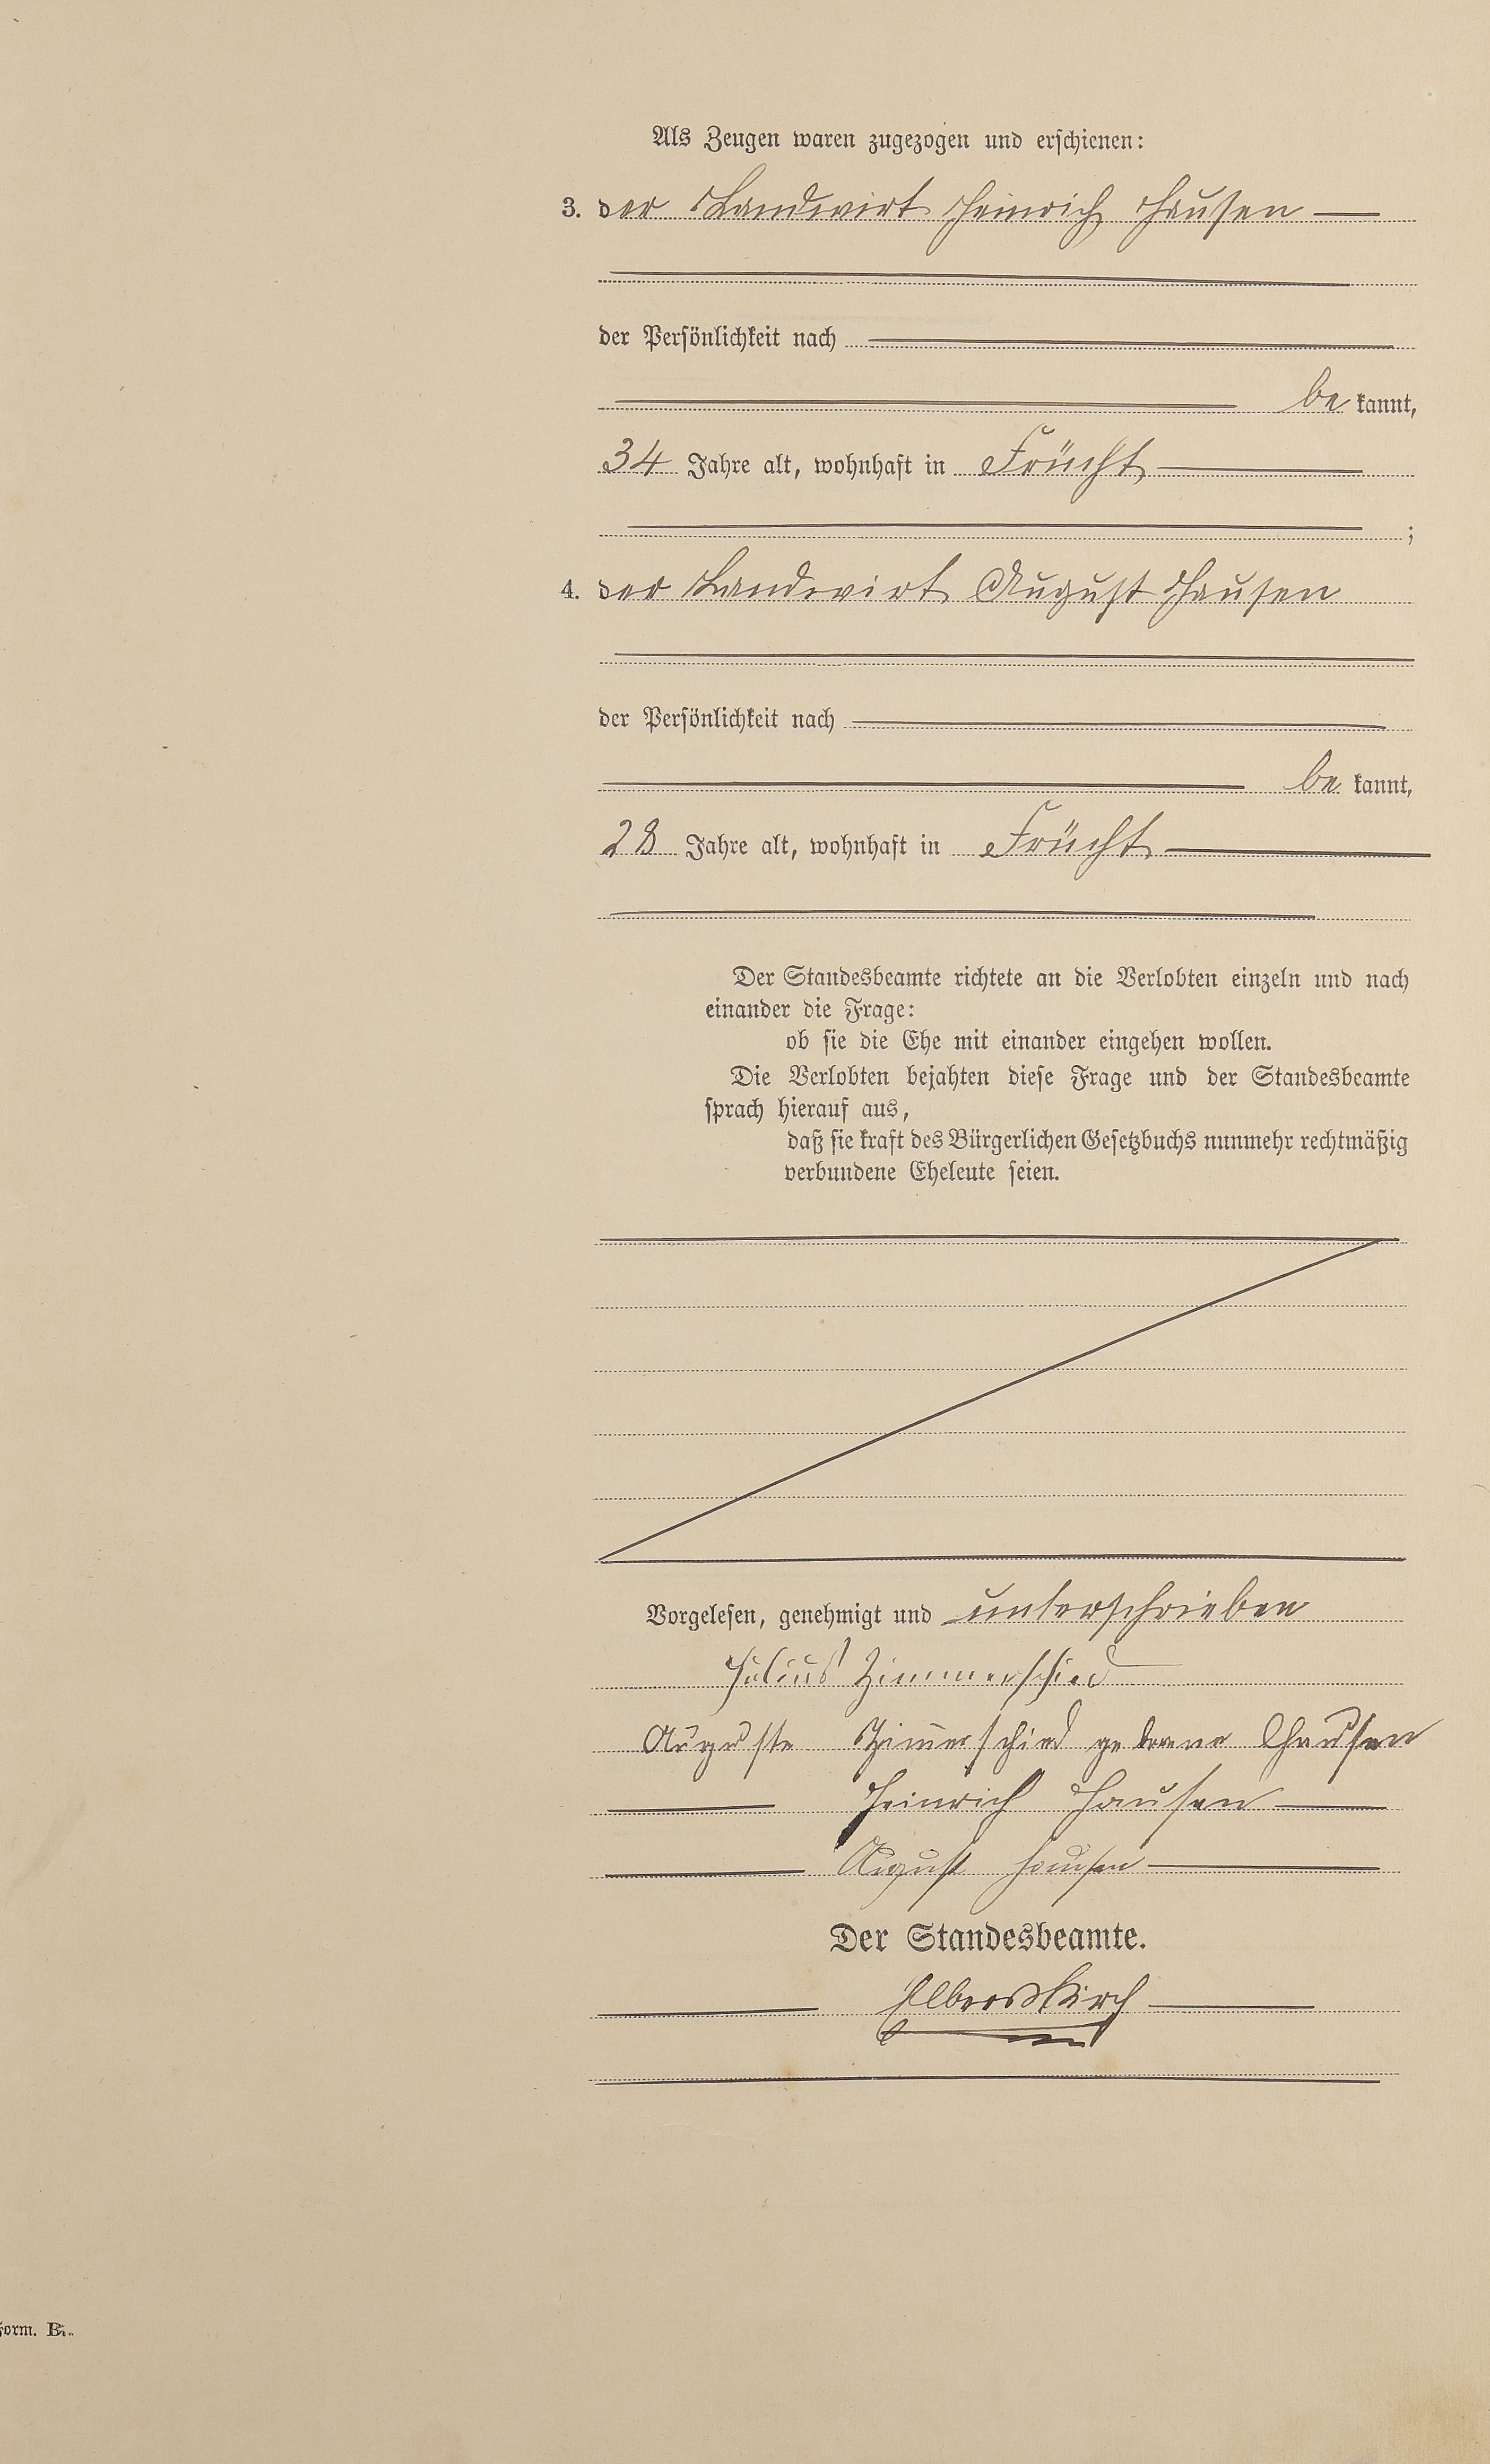 Als Zeugen waren zugezogen und erschienen:
3. der Landwirt Heinrich Hausen
der Persönlichkeit nach
be kannt,
34 Jahre alt, wohnhaft in Frücht
;
4. der Landwirt August Hausen
der Persönlichkeit nach
be kannt,
28 Jahre alt, wohnhaft in Frücht
Der Standesbeamte richtete an die Verlobten einzeln und nach
einander die Frage:
ob sie die Ehe mit einander eingehen wollen.
Die Verlobten bejahten diese Frage und der Standesbeamte
sprach hierauf aus,
daß sie kraft des Bürgerlichen Gesetzbuchs nunmehr rechtmäßig
verbundene Eheleute seien.
Vorgelesen, genehmigt und unterschrieben
Julius Zimmerschied
Auguste Zimmerschied geborene Hausen
Heinrich Hausen
August Hausen
Der Standesbeamte.
Form. B.